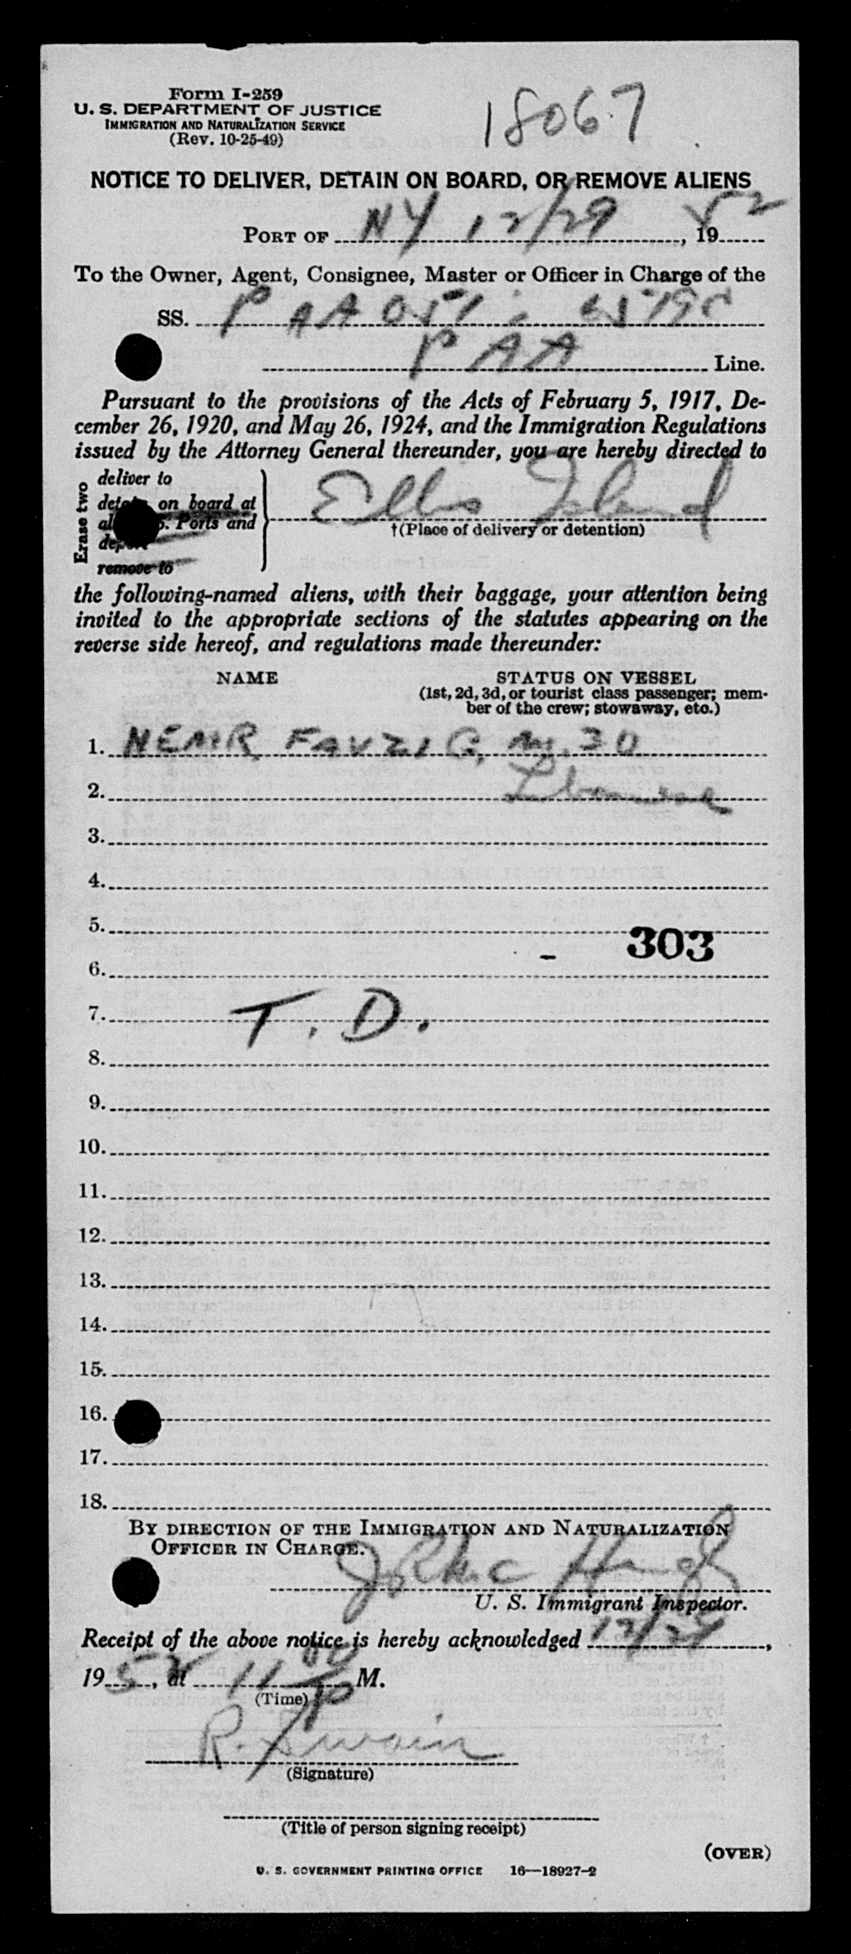 Form I-259
18067
U. S. DEPARTMENT OF JUSTICE
IMMIGRATION AND NATURALIZATION SERVICE
(Rev. 10-25-49)
NOTICE TO DELIVER, DETAIN ON BOARD, OR REMOVE ALIENS
PORT OF NY 12/29, 1952
To the Owner, Agent, Consignee, Master or Officer in Charge of the
SS. PAA 051
PAA Line.
Pursuant to the provisions of the Acts of February 5, 1917, De-
cember 26, 1920, and May 26, 1924, and the Immigration Regulations
issued by the Attorney General thereunder, you are hereby directed to
Erase two
deliver to
on board at
Ports and
remove to
Ellis Island
†(Place of delivery or detention)
the following-named aliens, with their baggage, your attention being
invited to the appropriate sections of the statutes appearing on the
reverse side hereof, and regulations made thereunder:
NAME STATUS ON VESSEL
(1st, 2d, 3d, or tourist class passenger; mem-
ber of the crew; stowaway, etc.)
1. NEMR FAUZI G. 30
2. Lebanese
3.
4.
5.
303
6.
7. T. D.
8.
9.
10.
11.
12.
13.
14.
15.
16.
17.
18.
BY DIRECTION OF THE IMMIGRATION AND NATURALIZATION
OFFICER IN CHARGE.
U. S. Immigrant Inspector.
Receipt of the above notice is hereby acknowledged 12/29,
1952, at 11 00 P M.
(Time)
R. Swain
(Signature)
(Title of person signing receipt)
(OVER)
U. S. GOVERNMENT PRINTING OFFICE 16—18927-2